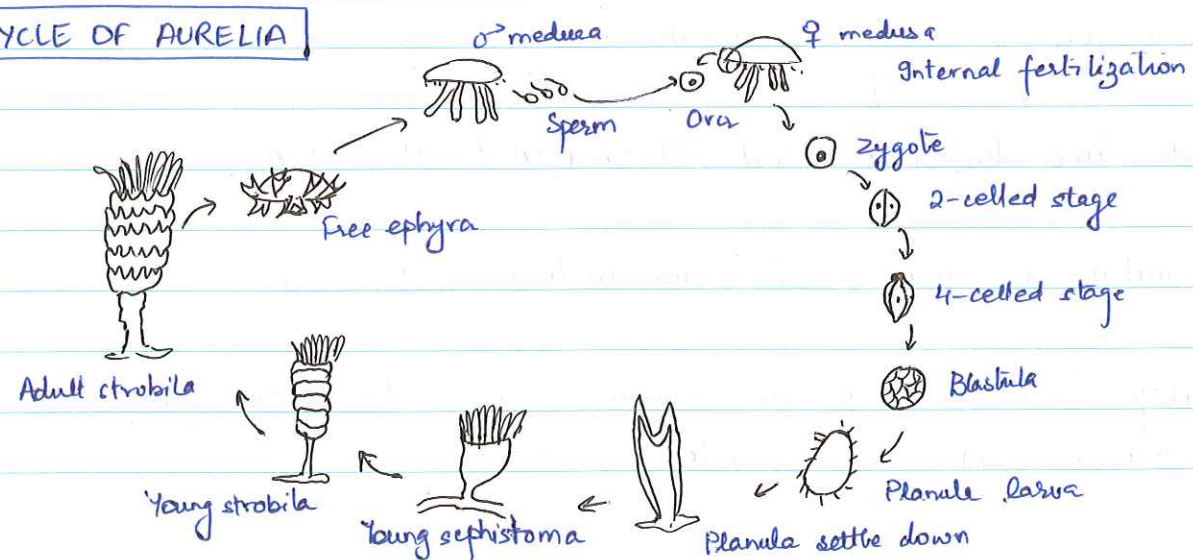 YCLE OF AURELIA
♂ medusa
♀ medusa
Internal fertilization
Sperm
Ova
Zygote
2-celled stage
4-celled stage
Blastula
Planule larva
Planula settle down
Young sephistoma
Young strobila
Adult strobila
Free ephyra